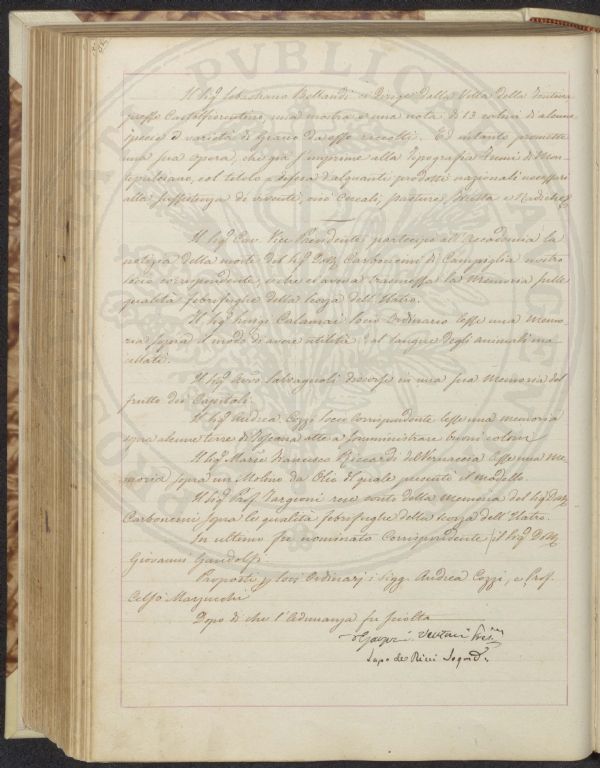 Il Sig. Sebastiano Bellandi ci dirige dalla Villa della Fontina
presso Castelfiorentino, una mostra e una nota di 13 colmi di alcune
specie e varietà di Grano da esso raccolti. Ed intanto promette
una sua opera, che già s'imprime alla Tipografia Fumi di Mon-
tepulciano, col titolo = difesa d'alquanti prodotti nazionali necessari
alla sussistenza di viventi, cioè Cereali, pasture, Bestie e Radiche
Il Sig. Cav. Vice Presidente partecipò all'Accademia la
notizia della morte del Sig. Dott. Carboncini di Campiglia nostro
socio corrispondente, e che ci aveva trasmessa la Memoria sulle
qualità febrifughe della scorza dell'Ilatro.
Il Sig. Luigi Calamai Socio Ordinario lesse una memo-
ria sopra il modo di avere utilità dal sangue degli animali ma-
cellati.
Il Sig. Avvo. Salvagnoli discorse in una sua Memoria del
frutto dei Capitali.
Il Sig. Andrea Cozzi Socio Corrispondente lesse una memoria
sopra alcune terre di Toscana atte a somministrare buoni colori
Il Sig. March. Francesco Riccardi del Vernaccia lesse una me-
moria sopra un Molino da Olio del quale presentò il modello.
Il Sig. Prof. Targioni rese conto della memoria del Sig. Dott.
Carboncini sopra le qualità febrifughe della scorza dell'Ilatro.
In ultimo fu nominato Corrispondente il Sig. Dott.
Giovanni Gandolfi.
Proposti per Soci Ordinarj i Sigg. Andrea Cozzi, e Prof.
Celso Marzucchi
Dopo di che l'Adunanza fu sciolta
Lapo de Ricci Segret.
PVBLICA